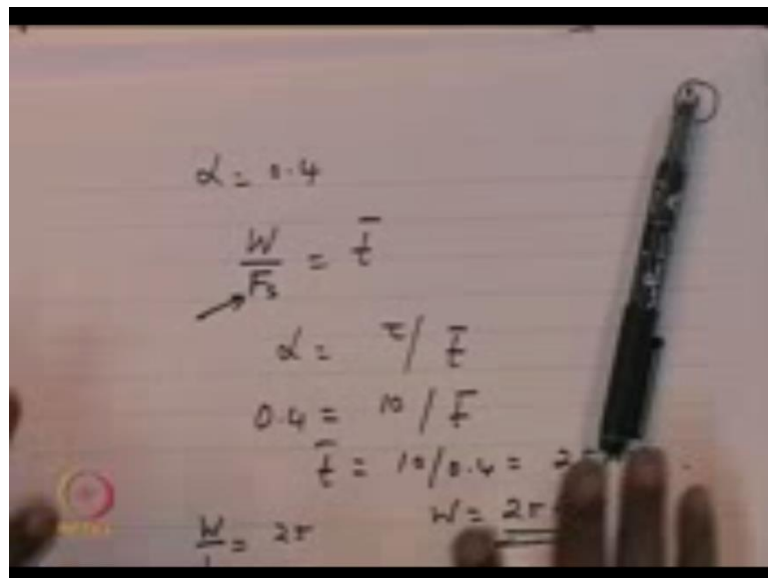 α = 0.4
W/F₃ = t̄
α = τ / t̄
0.4 = 10 / t̄
t̄ = 10/0.4 = 25
W = 25
W = 25